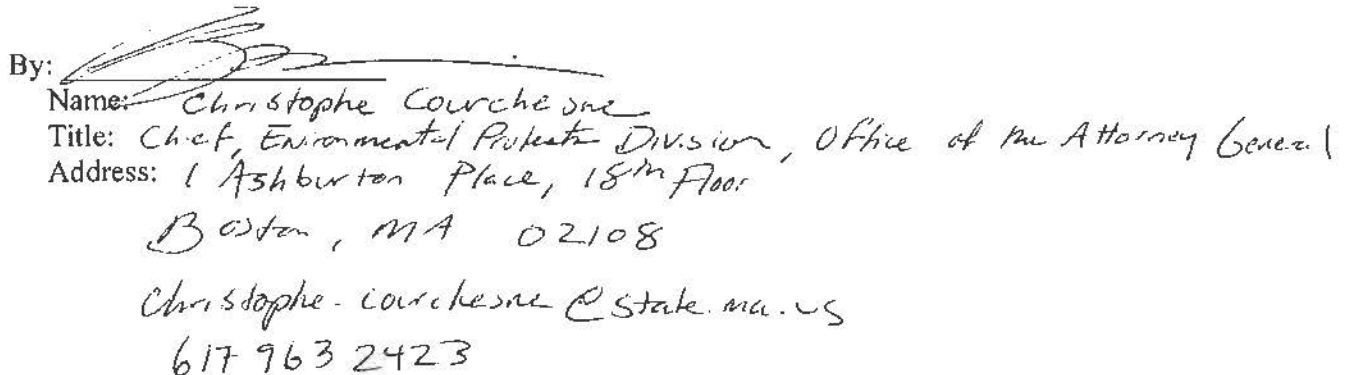 By:
Name: Christophe Courchesne
Title: Chief, Environmental Protection Division, Office of the Attorney General
Address: 1 Ashburton Place, 18th Floor
Boston, MA 02108
christophe.courchesne@state.ma.us
617 963 2423